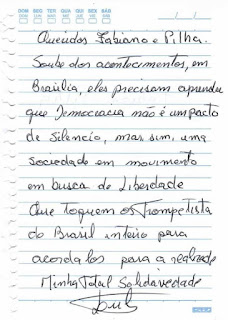 DOM LUN MAR QUA QUI SEX SÁB
Queridos Fabiano e Pilha.
Soube dos acontecimentos, em
Brasilia, eles precisam aprender
que Democracia não é um pacto
de Silencio, mas sim, uma
Sociedade em movimento
em busca de Liberdade
Que toquem os Trompetista
do Brasil inteiro para
acordalos para a realidade
Minha Total Solidariedade
Lula